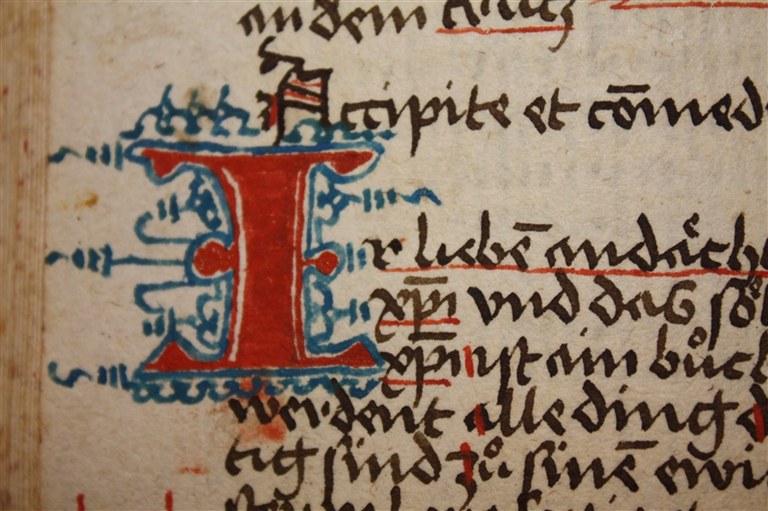 an dem
Accipite et cōmed
Ir liebē andächt
xp̄i vnd das
xp̄i ist ain bůch
werdent alle ding
tig sind zů sinē ewi